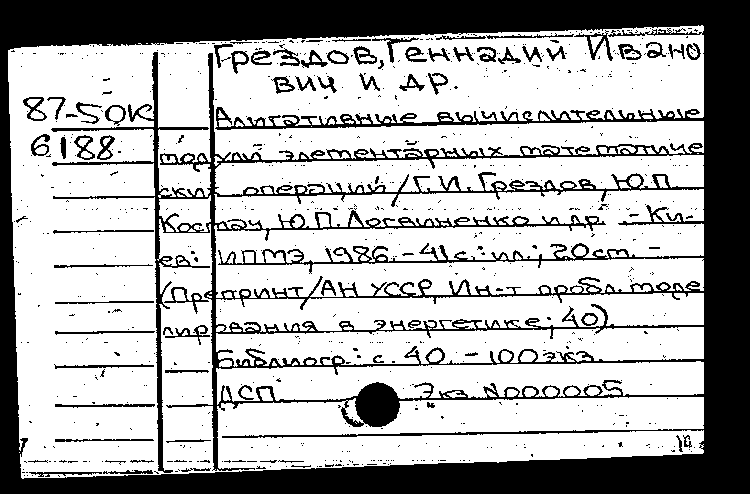 Грездов, Геннадий Ивано
вич и др.
87-50К
6188.
Алигативные вычислительные
модули элементарных математиче
ских операций / Г.И. Грездов, Ю.П.
Космач, Ю.П. Логвиненко и др. - Ки-
ев: ИПМЭ, 1986. - 41 с.: ил.; 20 см. -
(Препринт / АН УССР, Ин-т пробл. моде
лирования в энергетике; 40).
Библиогр.: с. 40. - 100 экз.
ДСП. Экз. N000005